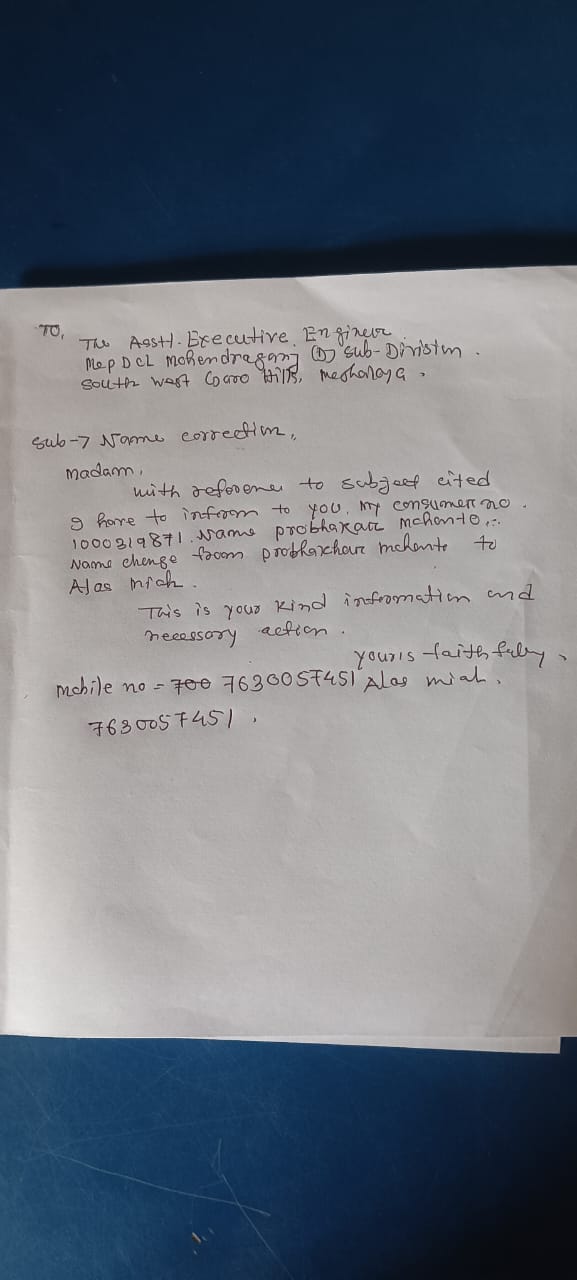 To,
The Asstt. Executive Engineer
MePDCL Mohendraganj (D) Sub-Division.
South West Garo Hills, Meghalaya.
Sub → Name correction,
Madam,
with reference to subject cited
I have to inform to you. my consumer no.
1000319871. Name probhakar mohonto,
Name chenge from probhakhar mchento to
Alas miah.
This is your kind information and
necessary action.
youris faithfuly,
mobile no = 700 7630057451 Alas miah.
7630057451.